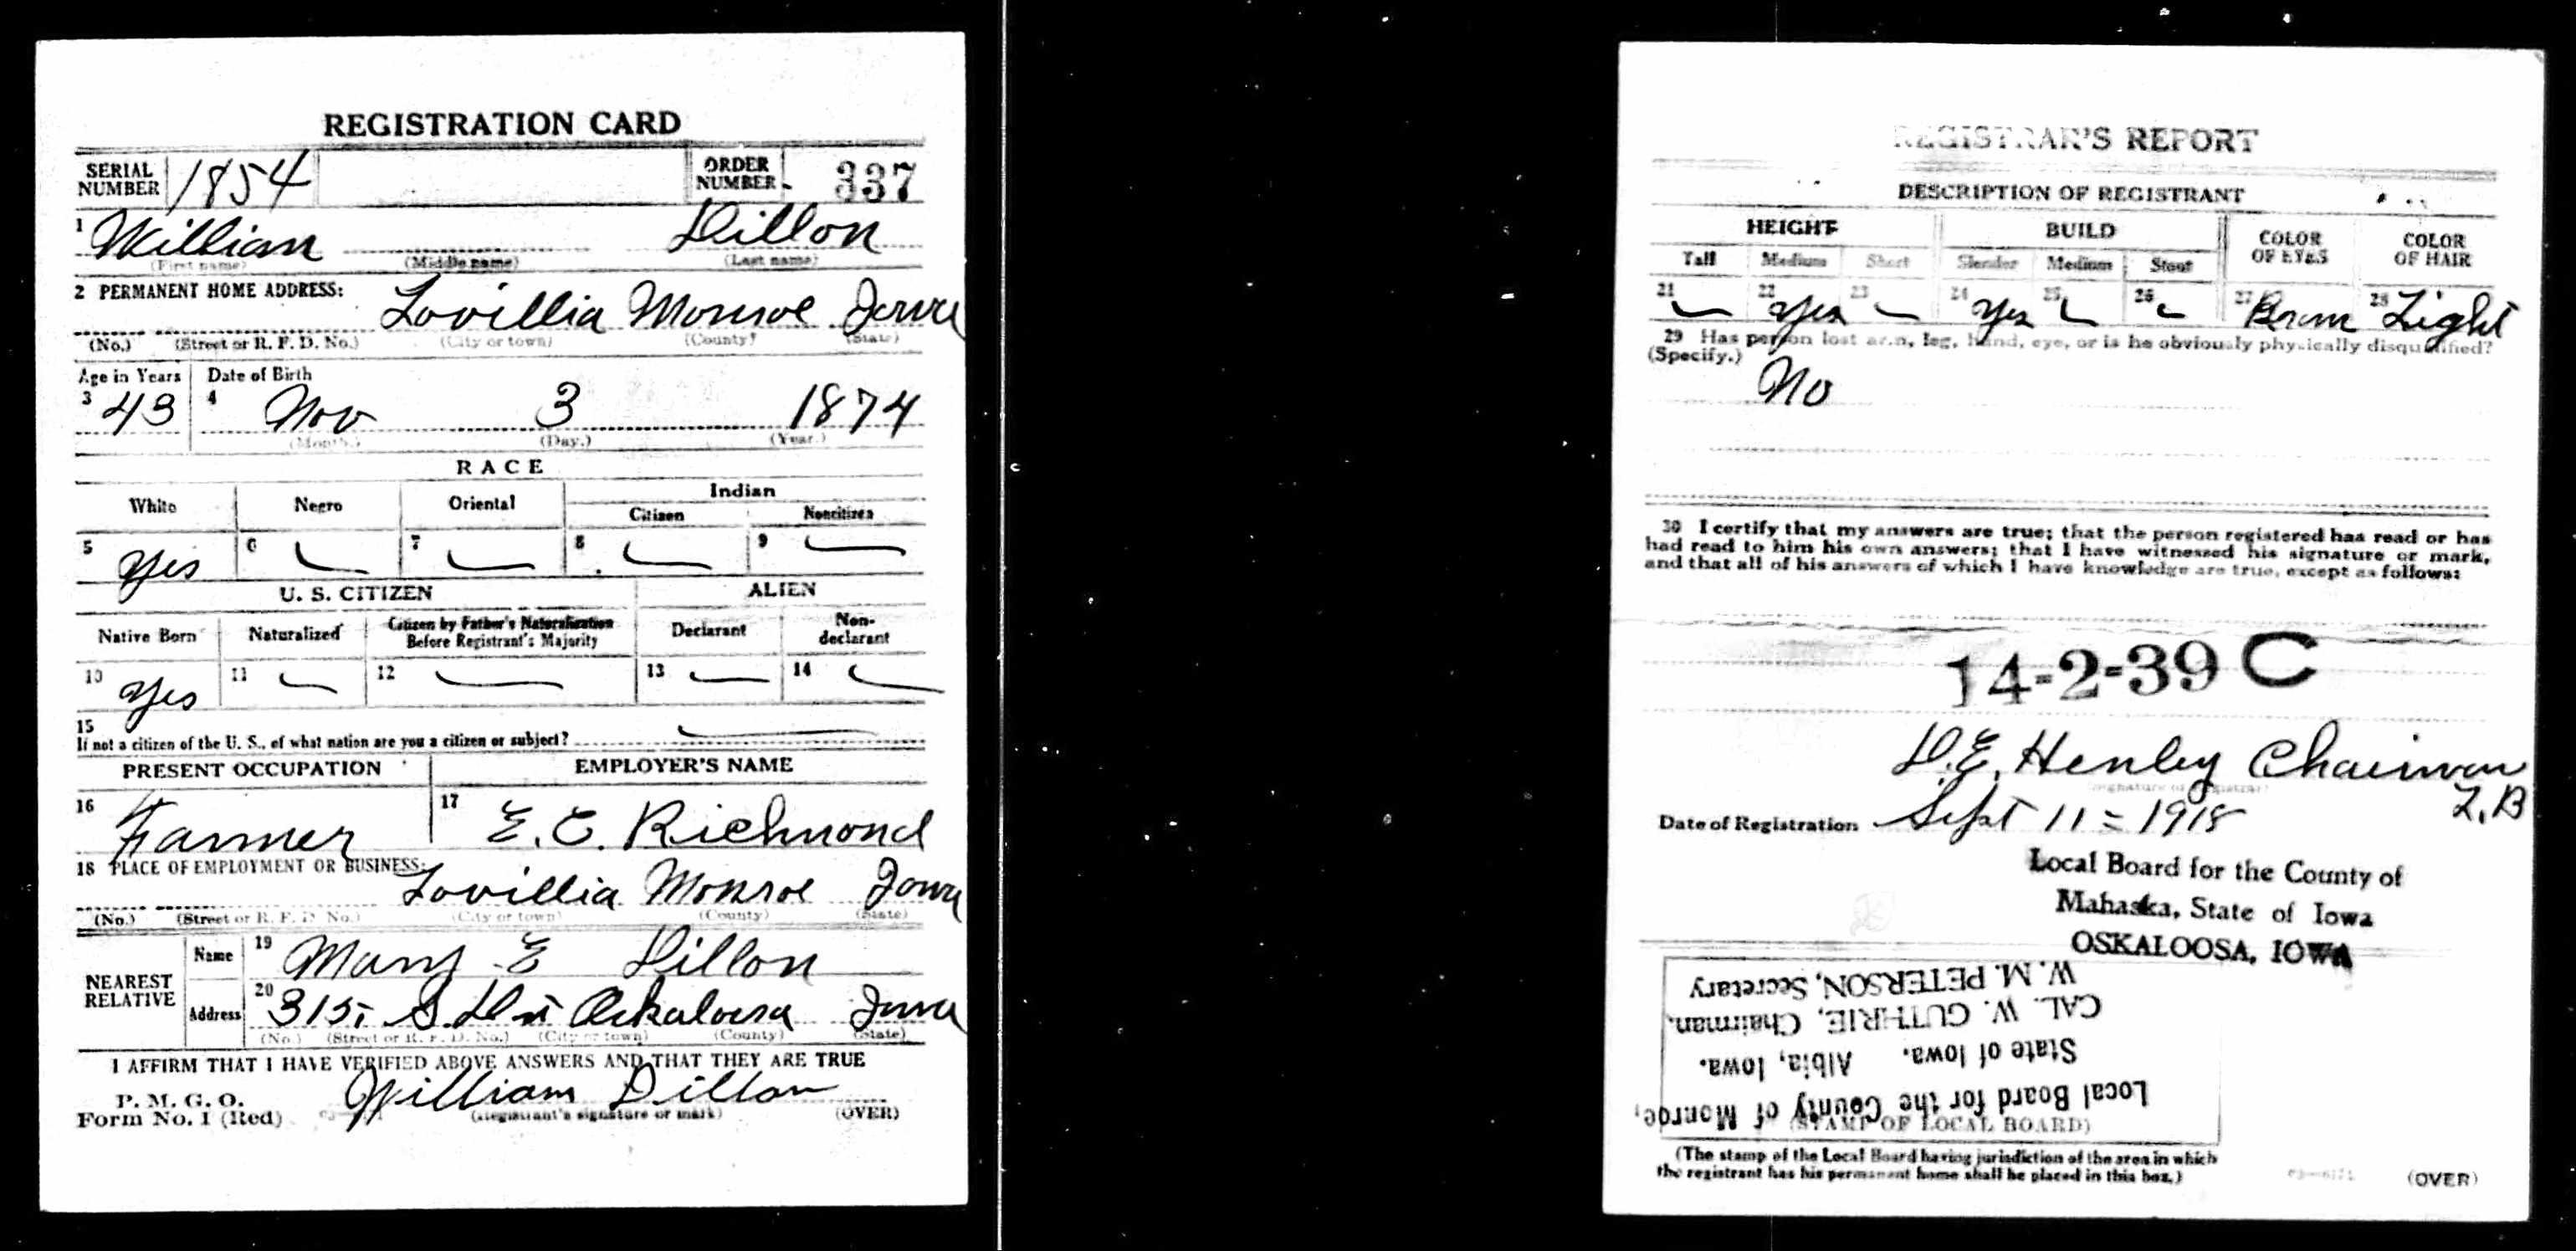 REGISTRATION CARD
SERIAL NUMBER 1854 ORDER NUMBER 337
1 William Dillon
(First name) (Middle name) (Last name)
2 PERMANENT HOME ADDRESS: Lovillia Monroe Iowa
(No.) (Street or R. F. D. No.) (City or town) (County) (State)
Age in Years Date of Birth
3 43 4 Nov 3 1874
(Month.) (Day.) (Year.)
RACE
White Negro Oriental Indian
Citizen Noncitizen
5 Yes 6 7 8 9
U. S. CITIZEN ALIEN
Native Born Naturalized Citizen by Father's Naturalization Before Registrant's Majority Declarant Non-declarant
10 Yes 11 12 13 14
15
If not a citizen of the U. S., of what nation are you a citizen or subject?
PRESENT OCCUPATION EMPLOYER'S NAME
16 Farmer 17 E. E. Richmond
18 PLACE OF EMPLOYMENT OR BUSINESS: Lovillia Monroe Iowa
(No.) (Street or R. F. D. No.) (City or town) (County) (State)
NEAREST RELATIVE
Name 19 Mary E Dillon
Address 20 315 S. Oskaloosa Iowa
(No.) (Street or R. F. D. No.) (City or town) (County) (State)
I AFFIRM THAT I HAVE VERIFIED ABOVE ANSWERS AND THAT THEY ARE TRUE
P. M. G. O.
Form No. 1 (Red) William Dillon
(Registrant's signature or mark) (OVER)
REGISTRAR'S REPORT
DESCRIPTION OF REGISTRANT
HEIGHT BUILD COLOR OF EYES COLOR OF HAIR
Tall Medium Short Slender Medium Stout
21 22 Yes 23 24 Yes 25 26 27 Brown 28 Light
29 Has person lost arm, leg, hand, eye, or is he obviously physically disqualified?
(Specify.) No
30 I certify that my answers are true; that the person registered has read or has
had read to him his own answers; that I have witnessed his signature or mark,
and that all of his answers of which I have knowledge are true, except as follows:
14-2-39 C
D.E. Henley Chairman
(Signature of registrar) L.B
Date of Registration Sept 11 = 1918
Local Board for the County of
Mahaska, State of Iowa
OSKALOOSA, IOWA
Local Board for the County of Monroe,
State of Iowa. Albia, Iowa.
CAL. W. GUTHRIE, Chairman.
W. M. PETERSON, Secretary
(STAMP OF LOCAL BOARD)
(The stamp of the Local Board having jurisdiction of the area in which
the registrant has his permanent home shall be placed in this box.)
(OVER)